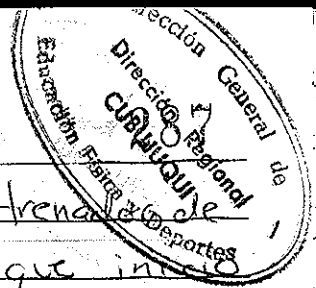 rección General de
Educación Física y Deportes
Dirección Regional
87
trenador de
que inició